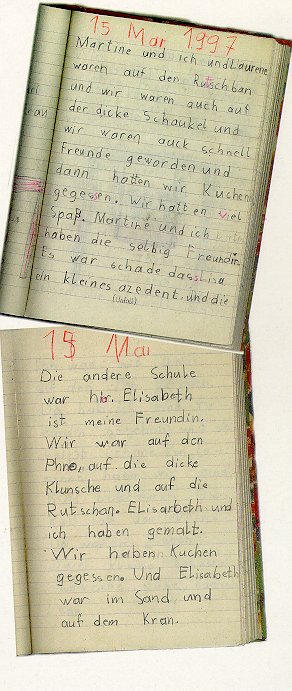 15 Mai 1997
Martine und ich und Laurene
waren auf den Rutschban
und wir waren auch auf
der dicke Schaukel und
wir waren auck schnell
Freunde geworden und
dann hatten wir Kuchen
gegessen. Wir hatten viel
Spaß. Martine und ich
haben die selbig Freundin.
Es war schade dass Lisa
ein kleines azedent. und die
(Unfall)
15 Mai
Die andere Schule
war hir. Elisabeth
ist meine Freundin.
Wir war auf den
Phne, auf die dicke
Klunsche und auf die
Rutschan. Elisarbeth und
ich haben gemalt.
Wir haben Kuchen
gegessen. Und Elisabeth
war im Sand und
auf dem Kran.